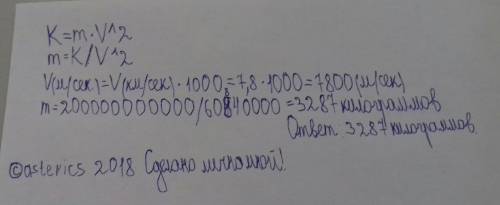 K=m·V^2
m=K/V^2
V(м/сек)=V(км/сек)·1000=7,8·1000=7800(м/сек)
m=200000000000/60840000=3287килограммов
Ответ 3287килограммов.
©asterics 2018 Сделано лично мной!